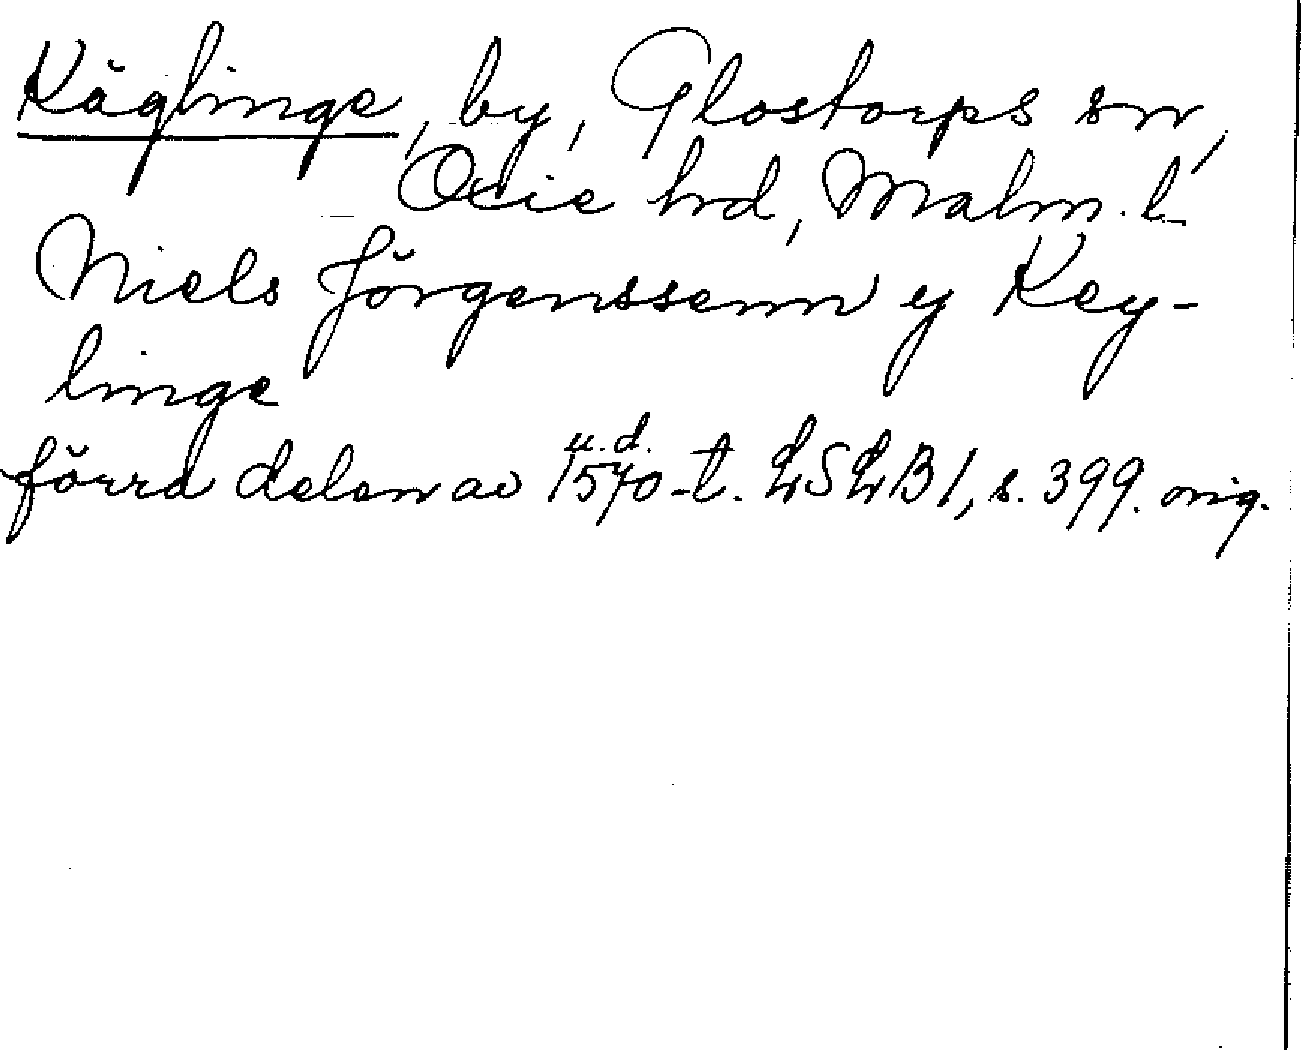 Käglinge, by, Glostorps sn,
Oxie hrd, Malm. l.
Niels Jörgenssenn y Key-
linge
u.d.
förra delen av 1570-t. LSLB1, s. 399. orig.